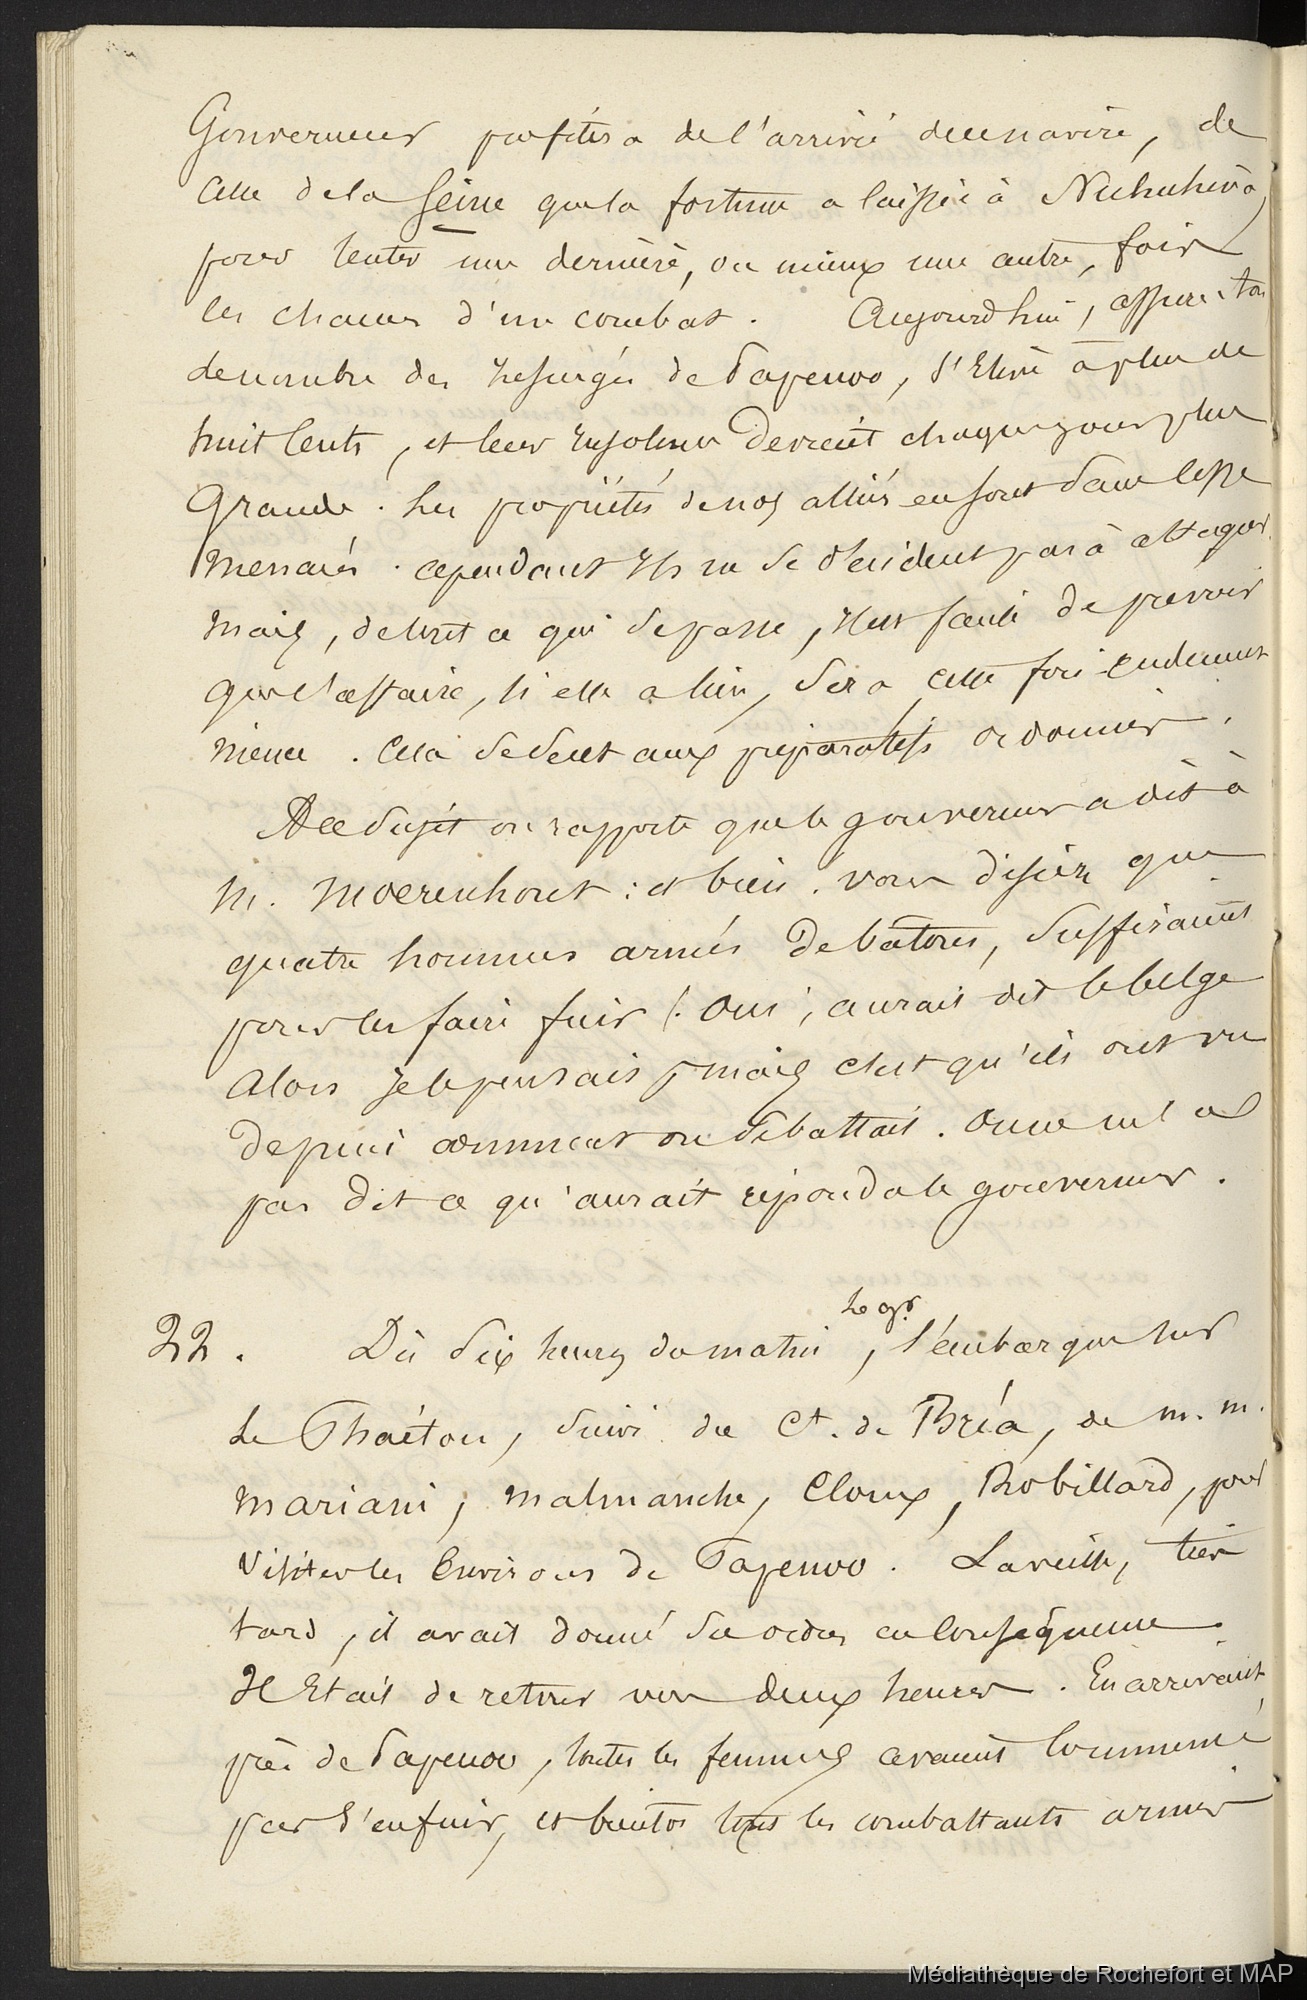 Gouverneur profitera de l'arrivée de ce navire, de
celle de la Seine que la fortune a laissée à Nukuhiva,
pour tenter une dernière, ou mieux une autre, fois
les chances d'un combat. Aujourd'hui, assure-t-on
le nombre des réfugiés de Papenoo, s'élève à plus de
huit cents, et leur insolence devient chaque jour plus
grande. Les propriétés de nos alliés en sont sans cesse
menacés. cependant ils ne se décident pas à attaquer
mais, de tout ce qui se passe, il est facile de prévoir
que l'affaire, si elle a lieu, sera cette fois
. Cela se sent aux préparatifs ordonnés.
A ce sujet on rapporte que le gouverneur a dit à
M. Moerenhout : et bien. vous disiez que
quatre hommes armés de bâtons, suffiraient
pour les faire fuir !. Oui, aurait dit le belge
alors je le pensais, mais c'est qu'ils ont vu
depuis comment on se battait. On ne m'a
pas dit ce qu'aurait répondu le gouverneur.
22. Dès dix heures du matin, le gr. s'embarque sur
le Phaéton, suivi du Ct. de Bréa, de m. m.
Mariani, Malmanche, Cloux, Robillard, pour
visiter les environs de Papenoo. La veille, très
tard, il avait donné des ordres en conséquence.
Il était de retour vers deux heures. En arrivant
près de Papenoo, toutes les femmes avaient commencé
par s'enfuir, et bientôt tous les combattants armés
Médiathèque de Rochefort et MAP